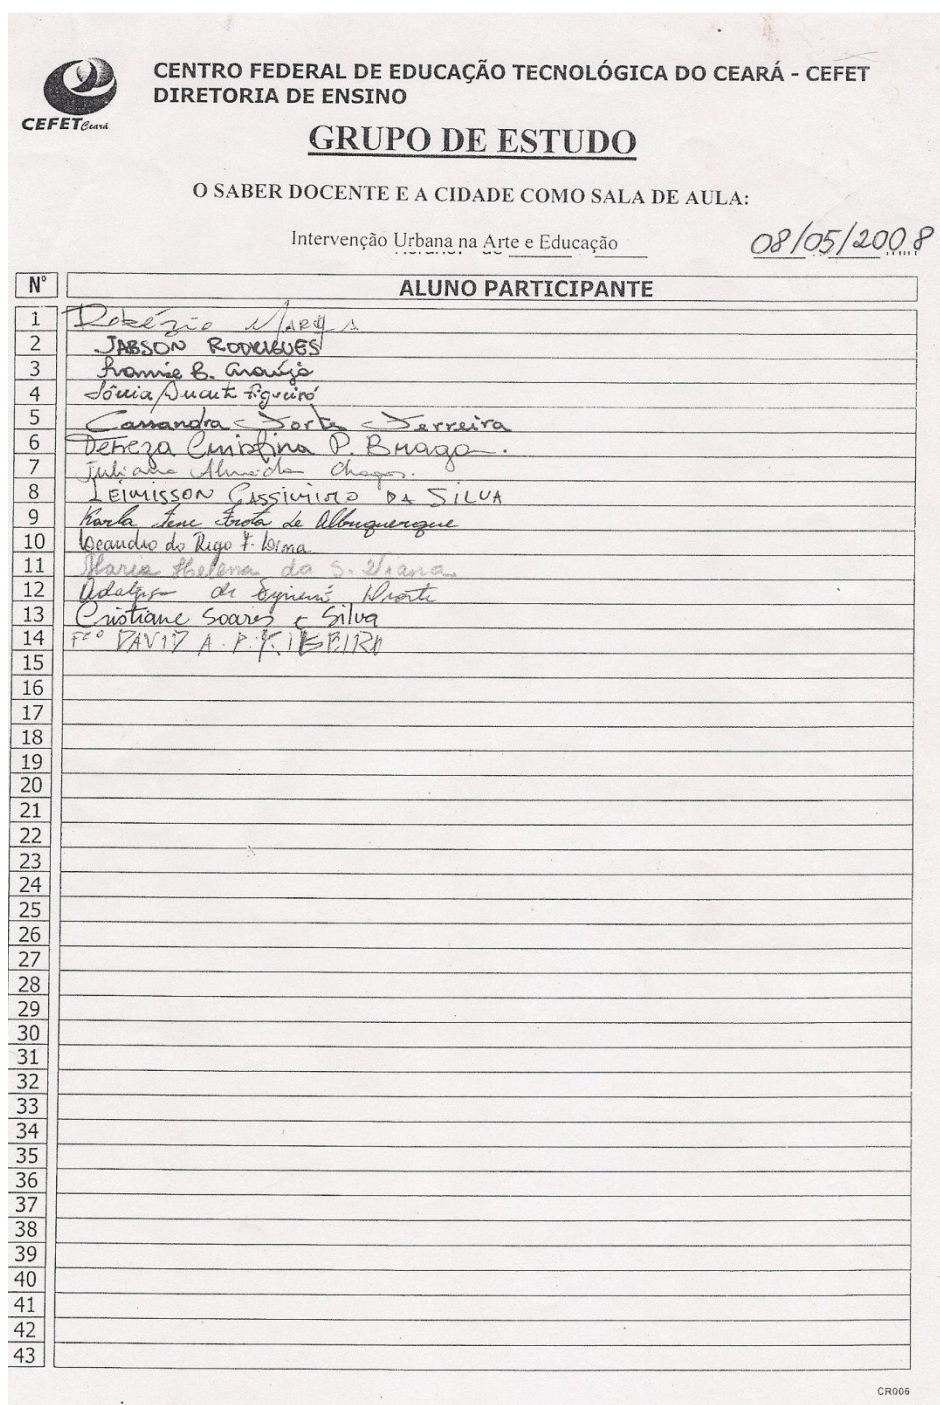 CENTRO FEDERAL DE EDUCAÇÃO TECNOLÓGICA DO CEARÁ - CEFET
DIRETORIA DE ENSINO
CEFET Ceará
GRUPO DE ESTUDO
O SABER DOCENTE E A CIDADE COMO SALA DE AULA:
Intervenção Urbana na Arte e Educação
08/05/2008
Nº ALUNO PARTICIPANTE
1 Robézio Marqs
2 JABSON RODRIGUES
3 B. Araújo
4 Sônia Duarte Figueiró
5 Cassandra Forte Ferreira
6 Tereza Cristina P. Braga.
7 Juliana Almeida Chagas.
8 LEIMISSON CASSIMIRO DA SILVA
9 Karla Frota de Albuquerque
10 Leandro do Rego F. Lima
11 Maria Helena da S. Viana.
12 de Duarte
13 Cristiane Soares e Silva
14 Fcº DAVID A. P. RIBEIRO
15
16
17
18
19
20
21
22
23
24
25
26
27
28
29
30
31
32
33
34
35
36
37
38
39
40
41
42
43
CR006